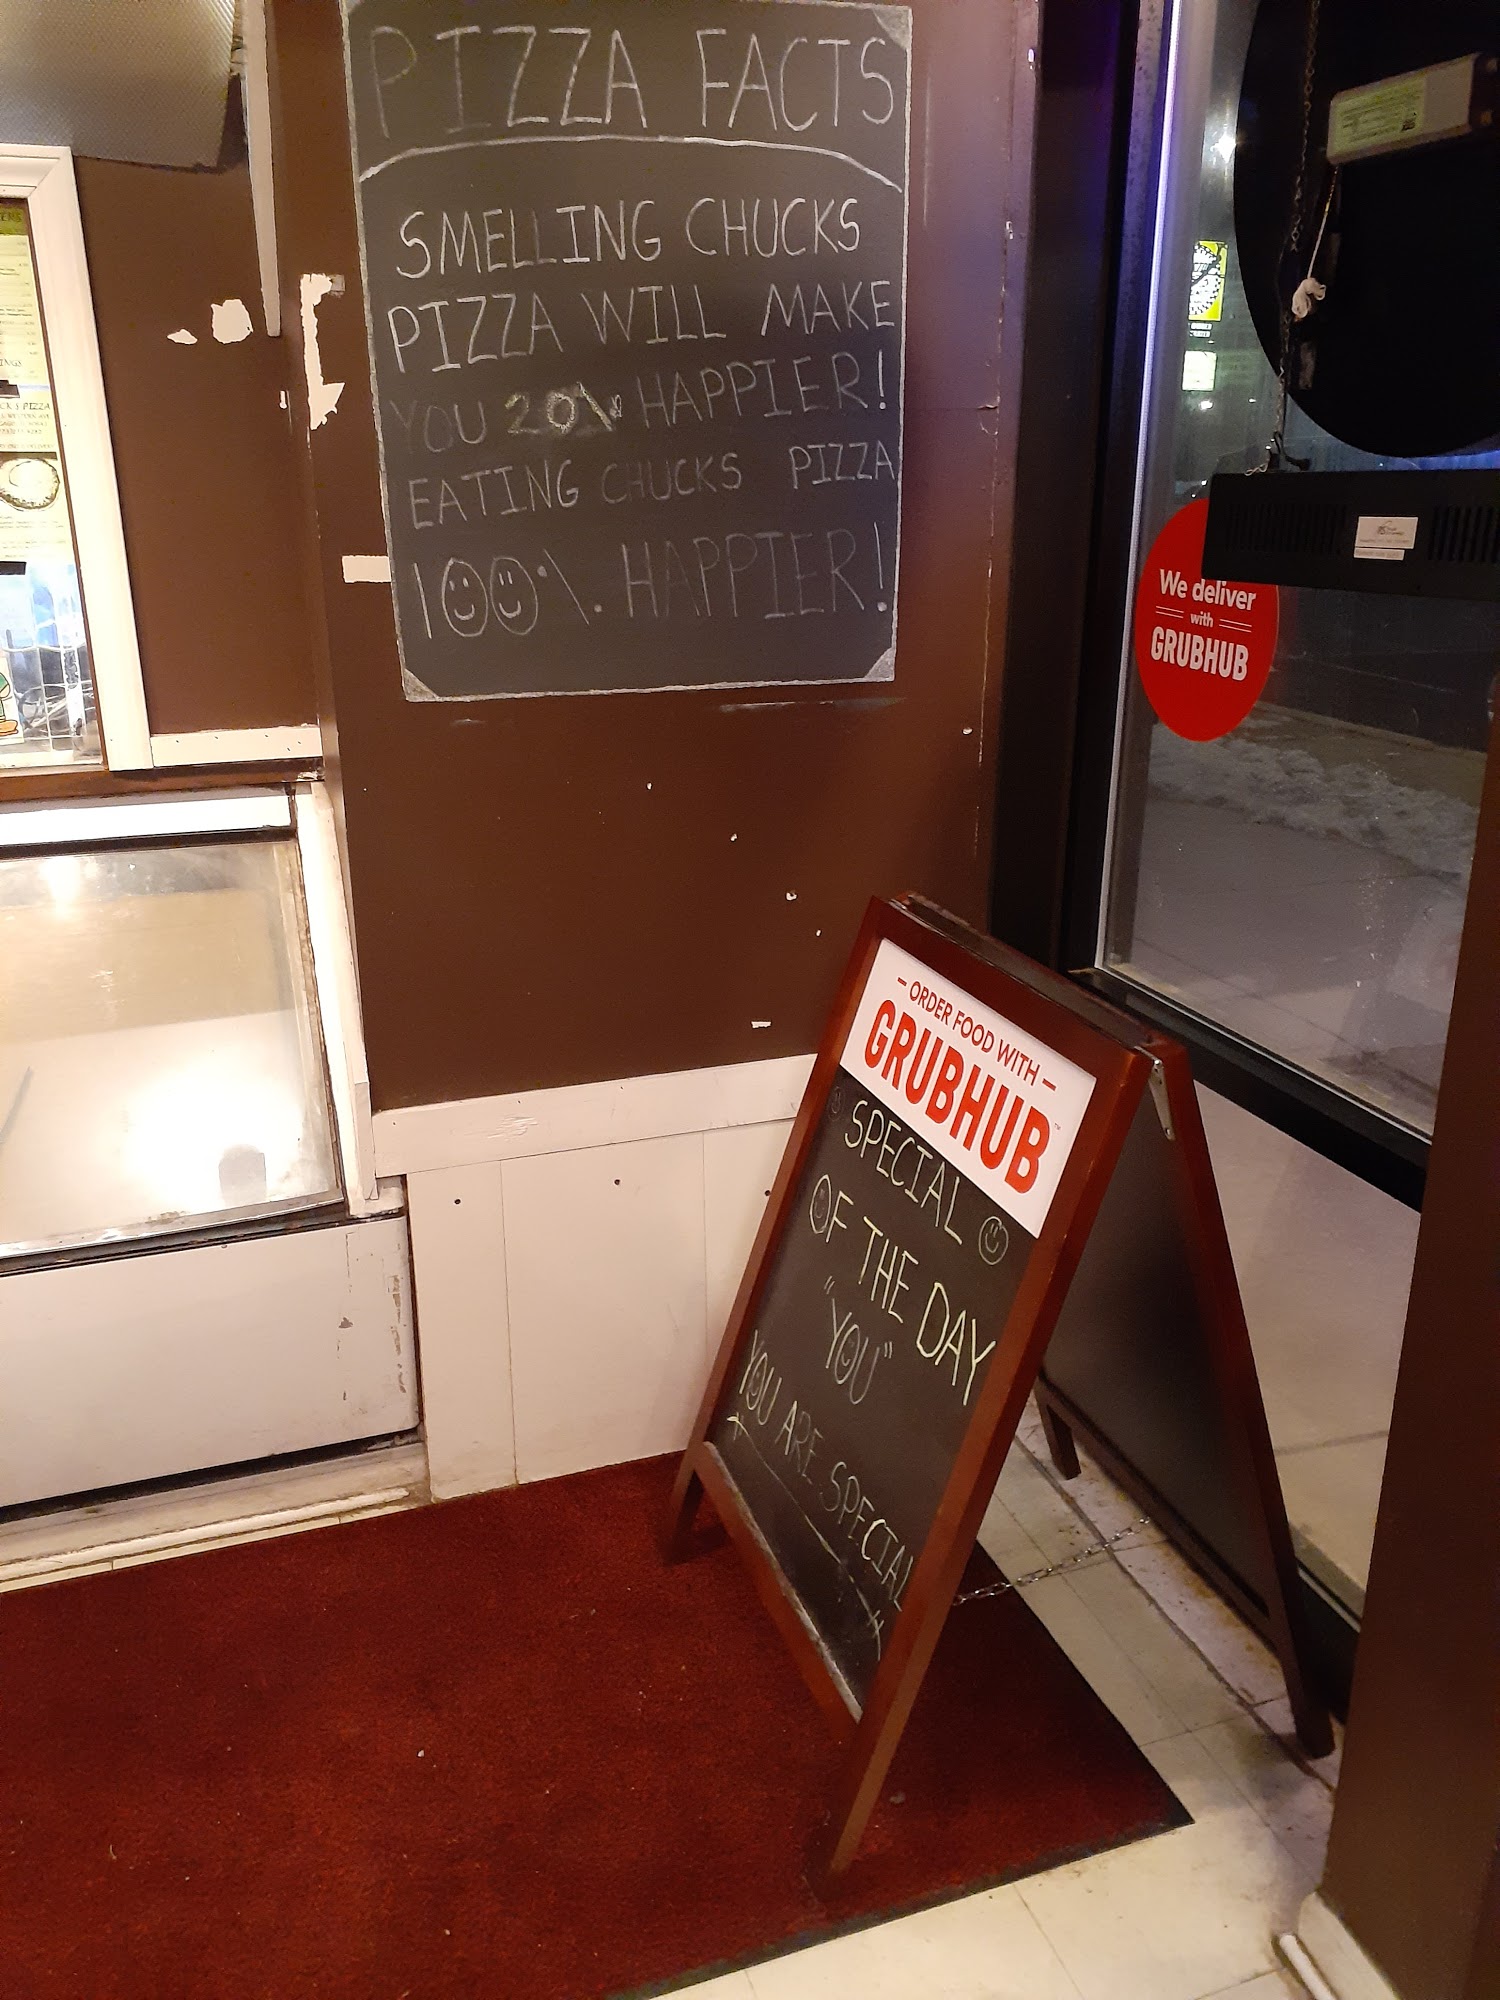 PIZZA FACTS
SMELLING CHUCKS
PIZZA WILL MAKE
YOU 20% HAPPIER!
EATING CHUCKS PIZZA
100%. HAPPIER!
We deliver
with
GRUBHUB
- ORDER FOOD WITH -
GRUBHUB™
SPECIAL
OF THE DAY
"YOU"
YOU ARE SPECIAL